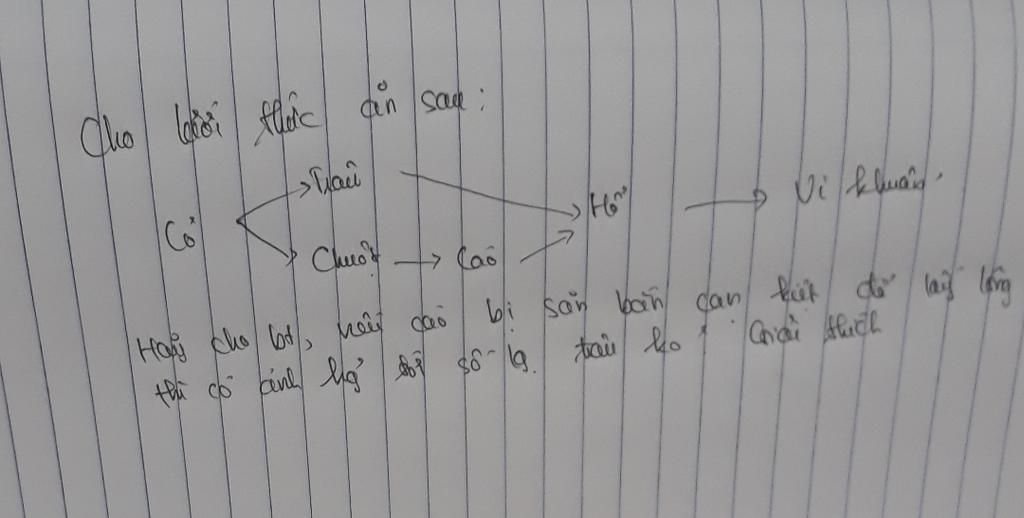 Cho lưới thức ăn sau:
Trâu
Cỏ Hổ Vi khuẩn.
Chuột Cáo
Hãy cho bt, nếu cáo bị săn bắn cạn kiệt để lấy lông
thì có ảnh hg tới số lg. trâu ko? Giải thích